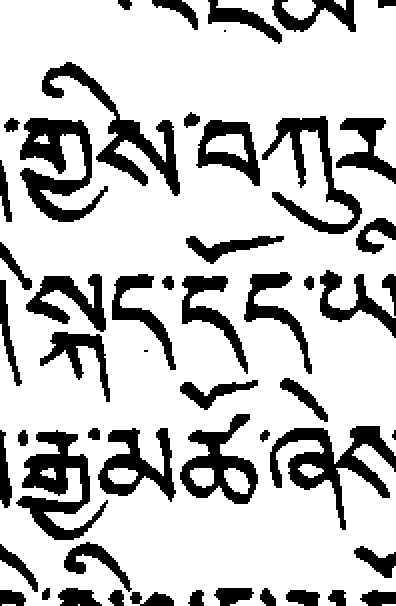 ་གྱིས་བཀུར
།སྐད་དོད་ཡི
་རྒྱ་མཚོ་ཞེས